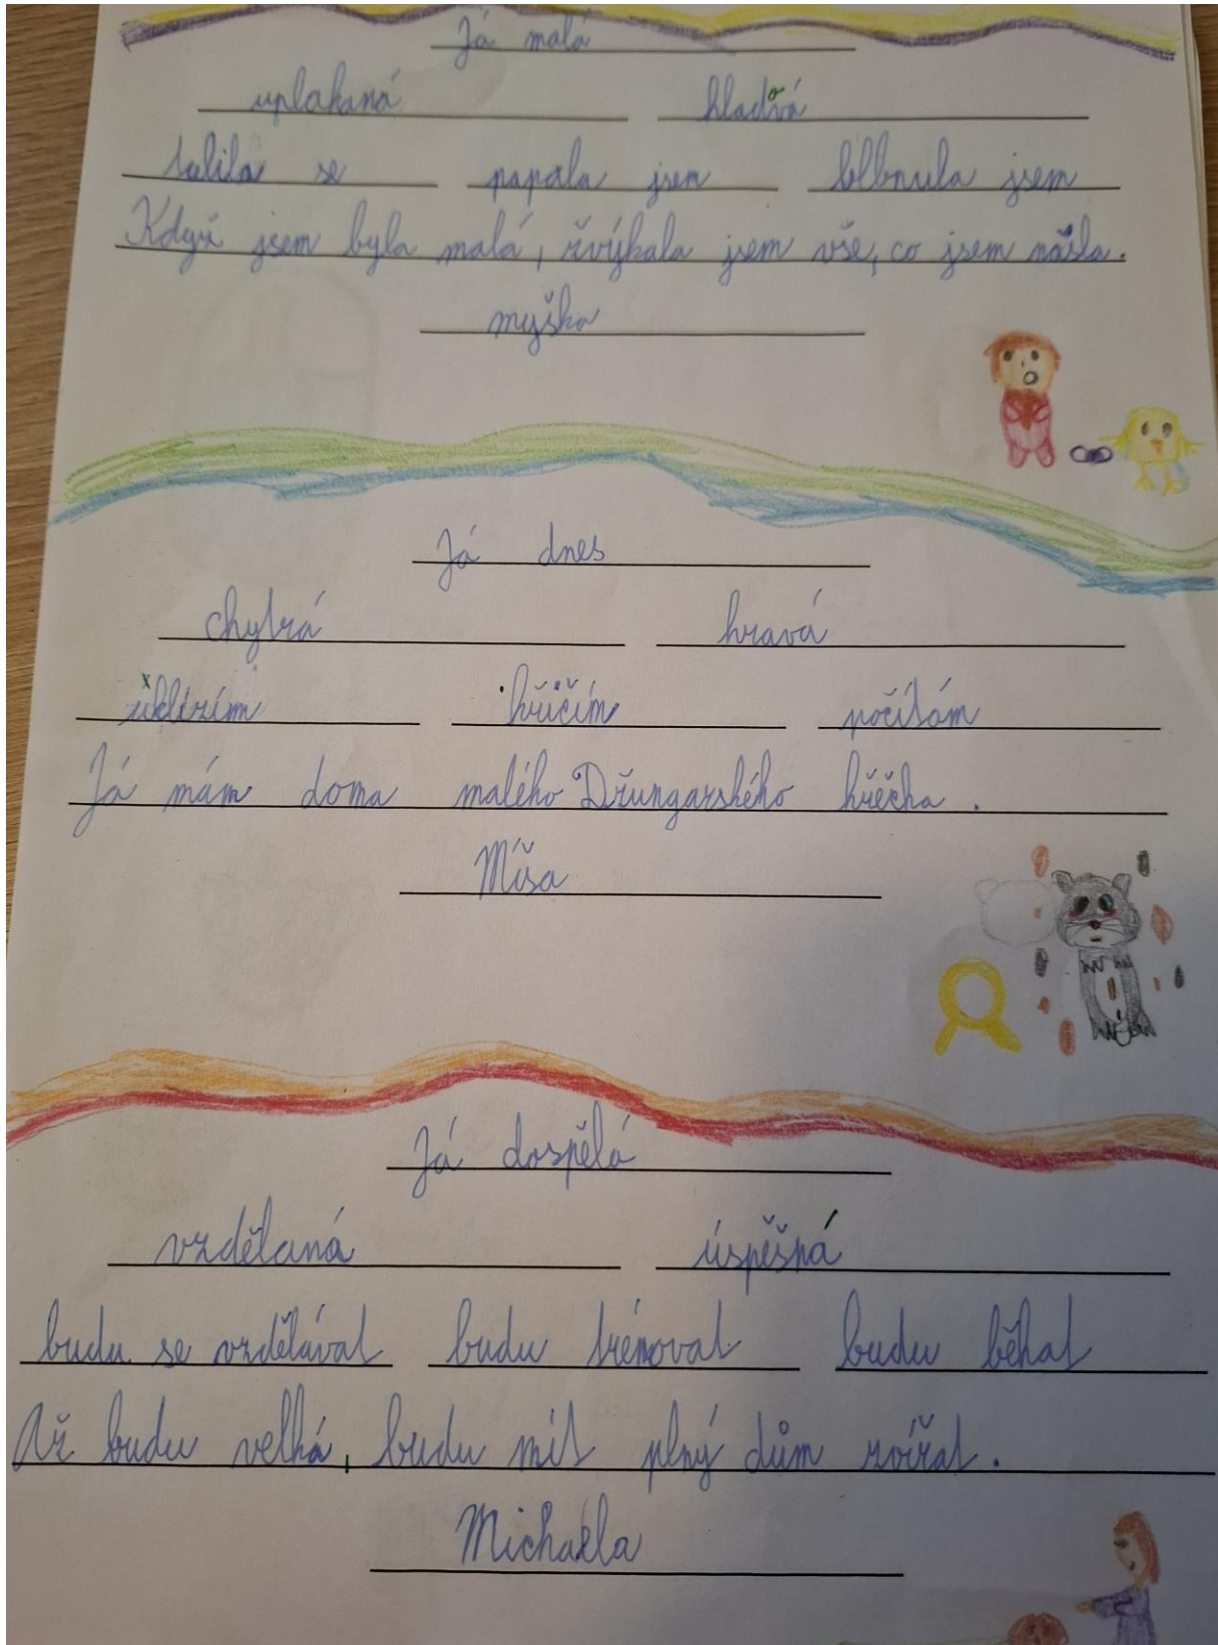 Já malá
uplakaná hladová
tulila se papala jsem blbnula jsem
Když jsem byla malá, žvýkala jsem vše, co jsem našla.
myška
Já dnes
chytrá hravá
uklízím křičím počítám
Já mám doma malého Džungarského křečka.
Míša
Já dospělá
vzdělaná úspěšná
budu se vzdělávat budu trénovat budu běhat
Až budu velká, budu mít plný dům zvířat.
Michaela